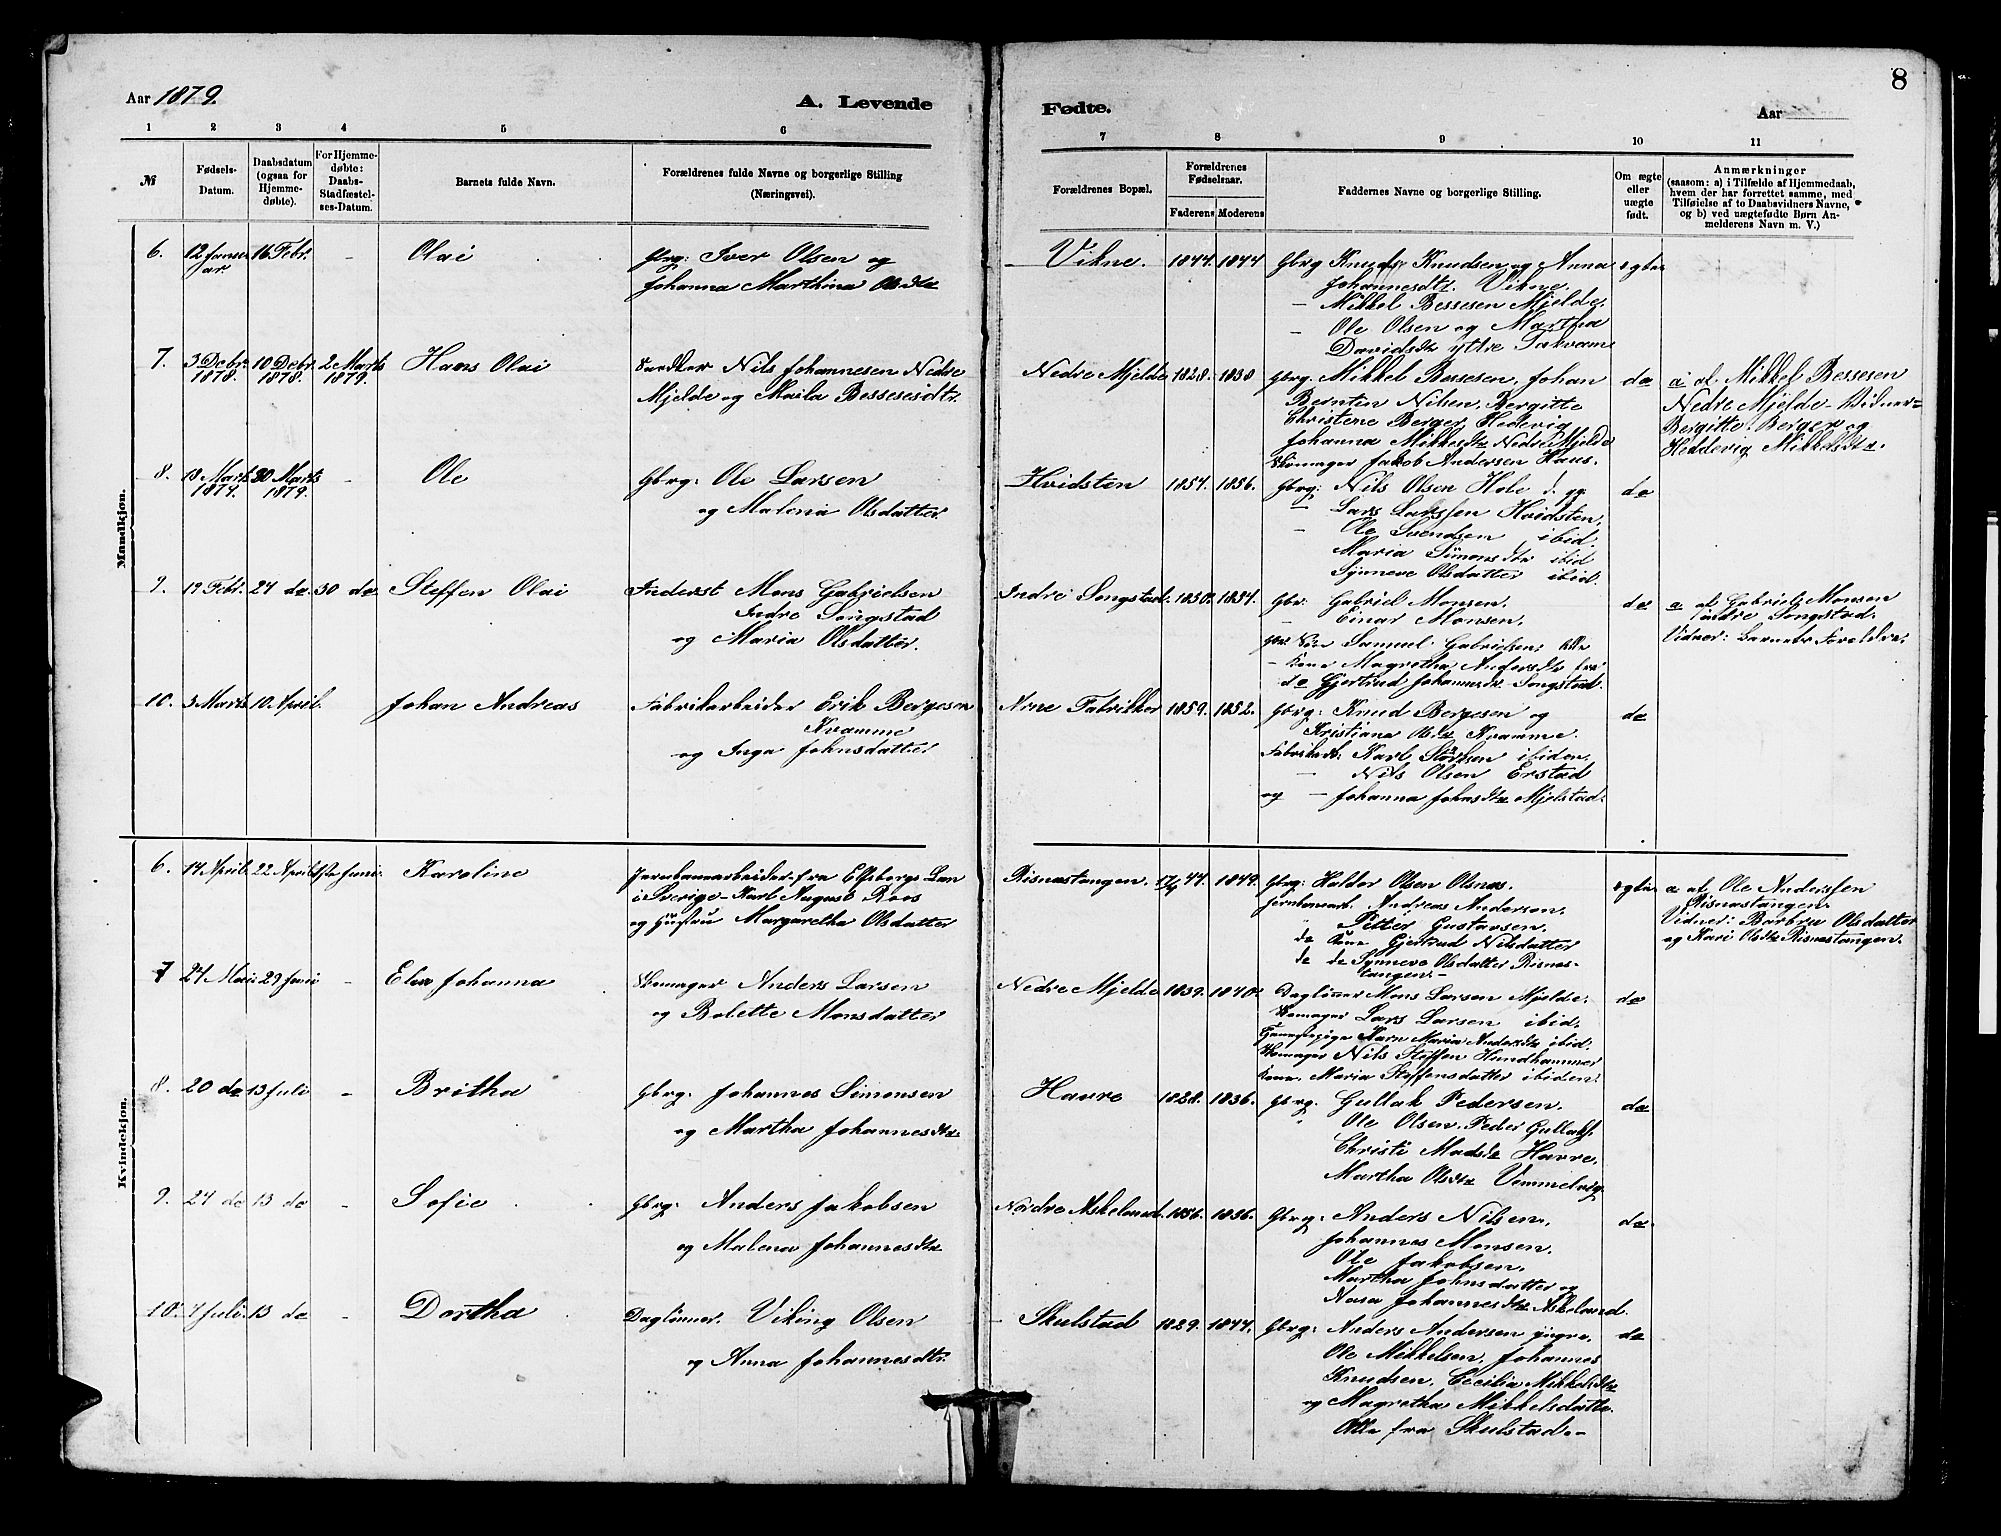 Aar 1879.
A. Levende
Fødte.
Aar
8
1 2 3 4 5 6 7 8 9 10 11
№
Fødsels-
Datum.
Daabsdatum
(ogsaa for
Hjemme-
døbte).
For Hjemme-
døbte:
Daabs-
Stadfæstel-
ses-Datum.
Barnets fulde Navn.
Forældrenes fulde Navne og borgerlige Stilling
(Næringsvei).
Forældrenes Bopæl.
Forældrenes
Fødselsaar.
Faderens Moderens
Faddernes Navne og borgerlige Stilling.
Om ægte
eller
uægte
født.
Anmærkninger
(saasom: a) i Tilfælde af Hjemmedaab,
hvem der har forrettet samme, med
Tilføielse af to Daabsvidners Navne,
og b) ved uægtefødte Børn An-
melderens Navn m. V.)
Mandkjøn.
6. 12 Janu-
ar 16 Febr. - Olai
Gbrg: Iver Olsen og
Johanna Marthina Olsdtr
Vikne. 1844. 1844
Gbrg Knud Knudsen og Anna
Johannesdtr. Vikne.
- Mikkel Bessesen Mjelde.
- Ole Olsen og Martha
Davidsdtr ytre Takvam
ægte
7. 3 Debr.
1878. 10 Debr.
1878. 2 Marts
1879. Hans Olai
Nils Johannesen Nedre
Mjelde og Maila Bessesesdtr.
Nedre Mjelde 1828. 1830
Gbrg. Mikkel Bessesen, Johan
Berntin Nilsen, Bergitte
Christene Berger, Hedevig
Johanna Mikkesdtr Nedre Mjelde
Skomager Jakob Andersen Haus.
do
a af Mikkel Bessesen
Nedre Mjelde - Vidner =
Bergitte Berger og
Heddevig Mikkelsdtr.
8. 18 Marts
1879. 30 Marts
1879. - Ole
Gbrg: Ole Larsen
og Malena Olsdatter
Hvidsten 1854. 1856.
Gbrg: Nils Olsen Hole
- Lars Larssen Hvidsten,
- Ole Svendsen ibid.
Maria Simonsdtr ibid
Synneve Olsdatter ibid.
do
9. 19 Febr. 24 do 30 do Steffen Olai
Inderst Mons Gabrielsen
Indre Songstad
og Maria Olsdatter.
Indre Songstad. 1850. 1854.
Gbr. Gabriel Monsen.
- Einar Monsen.
Samuel Gabrielsen, Alle
- Kone Magretha Andersdtr fra
do Gjertrud Johannesdtr Songstad.
do
a af Gabriel Monsen
indre Songstad.
Vidner: Barnets Forældre.
10. 3 Marts 10 April. Johan Andreas
Fabrikarbeider Erik Bergesen
Kvamme
og Inga Johnsdatter
Arne Fabrikker 1859. 1852.
Gbrg: Knud Bergesen og
Kristiane Olsdtr Kvamme.
Fabrikarb. Karl ibiden.
- Nils Olsen Erstad
og - Johanna Johnsdtr Mjelstad.
do
Kvindekjøn.
6. 14 April. 22 April Juni. Karoline
Jernbanearbeider fra Elfsborgs Len
i Sverige - Karl August Roos
og Hustru Margaretha Olsdatter
Risnæstangen. 44. 1849.
Gbrg: Haldor Olsen Olsnæs.
Jernbanearb. Andreas Anderson.
" Petter Gustavsen.
do Kone Gjertrud Nilsdatter
do do Synneve Olsdatter Risnæs-
tangen. -
ægte
a af Ole Anderssen
Risnæstangen.
Vidner: Barbru Olsdatter
og Kari Olsdtr Risnæstangen.
7 24 Mai 29 Juni - Elen Johanna
Skomager Anders Larsen
og Bolette Monsdatter
Nedre Mjelde 1839. 1840.
Daglønner Mons Larsen Mjelde.
Skomager Lars Larsen ibid.
Tjenestepige Karn Maria Andersdtr ibid.
Skomager Nils Steffen Hundhammer
Kone Maria Steffensdatter ibiden.
do
8. 20 do 13 Juli - Britha
Gbrg. Johannes Simonsen
og Martha Johannesdtr
Havre 1828. 1836.
Gbrg. Gullak Pedersen.
" Ole Olsen. Peder Gullaks.
Christi Madsdtr Havre.
Martha Olsdtr Vemmelvig
do
9. 24 do 13 do - Sofie
Gbrg: Anders Jakobsen
og Malena Johannesdtr
Nordre Askeland. 1856. 1856.
Gbrg: Anders Nilsen.
Johannes Monsen.
Ole Jakobsen.
Martha Johnsdatter og
Johannesdtr Askeland.
do
10. Juli. 13 do - Dortha
Daglønner. Viking Olsen
og Anna Johannesdtr.
- Skulstad 1829. 1844.
Gbrg: Anders Andersen yngre.
Ole Mikkelsen. Johannes
Knudsen. Cecilia Mikkelsdtr
og Magretha Mikkelsdatter
Alle fra Skulstad. -
do